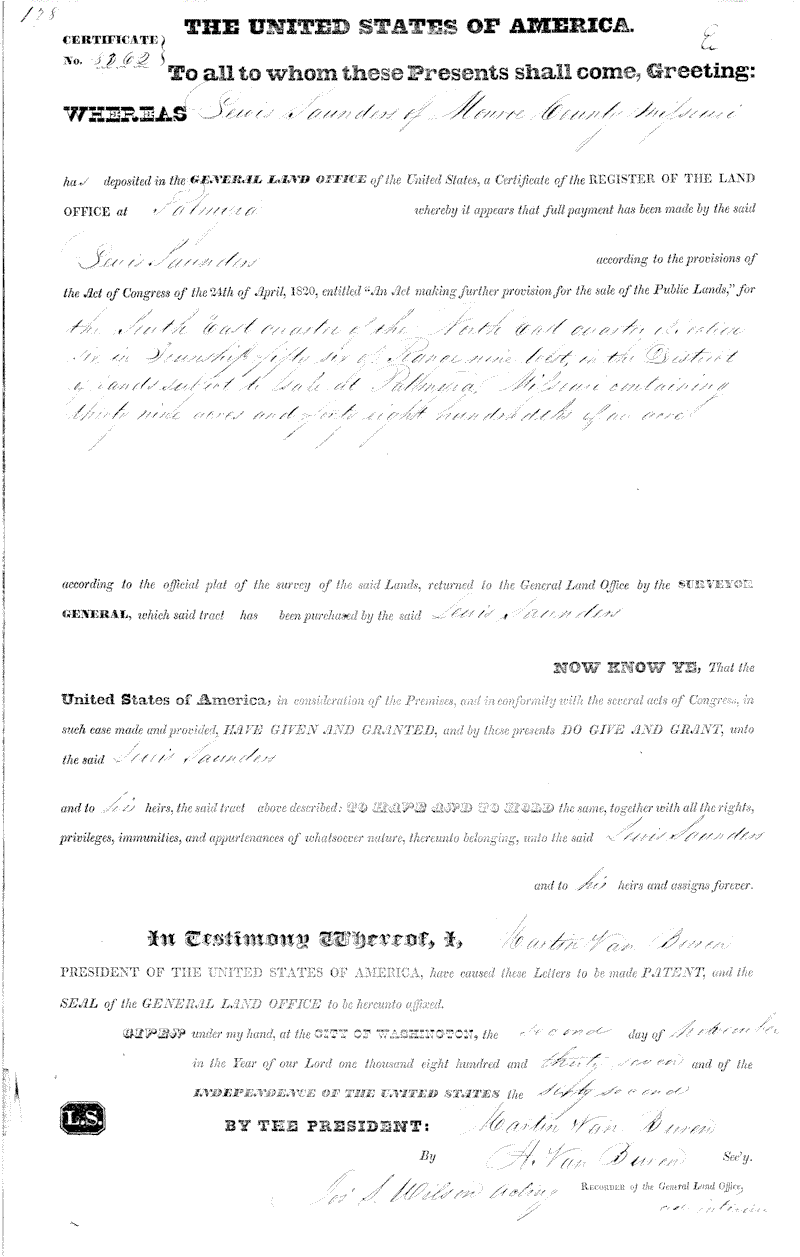 178
THE UNITED STATES OF AMERICA.
CERTIFICATE
No. 8262
To all to whom these Presents shall come, Greeting:
WHEREAS Lewis Saunders of Monroe County Missouri
has deposited in the GENERAL LAND OFFICE of the United States, a Certificate of the REGISTER OF THE LAND
OFFICE at Palmyra whereby it appears that full payment has been made by the said
Lewis Saunders according to the provisions of
the Act of Congress of the 24th of April, 1820, entitled "An Act making further provision for the sale of the Public Lands," for
the South East quarter of the North East quarter of Section
six in Township fifty six of Range nine West, in the District
of Lands subject to Sale at Palmyra, Missouri containing
thirty nine acres and forty eight hundredths of an acre
according to the official plat of the survey of the said Lands, returned to the General Land Office by the SURVEYOR
GENERAL, which said tract has been purchased by the said Lewis Saunders
NOW KNOW YE, That the
United States of America, in consideration of the Premises, and in conformity with the several acts of Congress, in
such case made and provided, HAVE GIVEN AND GRANTED, and by these presents DO GIVE AND GRANT, unto
the said Lewis Saunders
and to his heirs, the said tract above described: TO HAVE AND TO HOLD the same, together with all the rights,
privileges, immunities, and appurtenances of whatsoever nature, thereunto belonging, unto the said Lewis Saunders
and to his heirs and assigns forever.
In Testimony Whereof, I, Martin Van Buren
PRESIDENT OF THE UNITED STATES OF AMERICA, have caused these Letters to be made PATENT, and the
SEAL of the GENERAL LAND OFFICE to be hereunto affixed.
GIVEN under my hand, at the CITY OF WASHINGTON, the second day of November
in the Year of our Lord one thousand eight hundred and thirty seven and of the
INDEPENDENCE OF THE UNITED STATES the sixty second
L.S.
BY THE PRESIDENT: Martin Van Buren
By A. Van Buren Sec'y.
Jos. S. Wilson acting RECORDER of the General Land Office,
ad interim